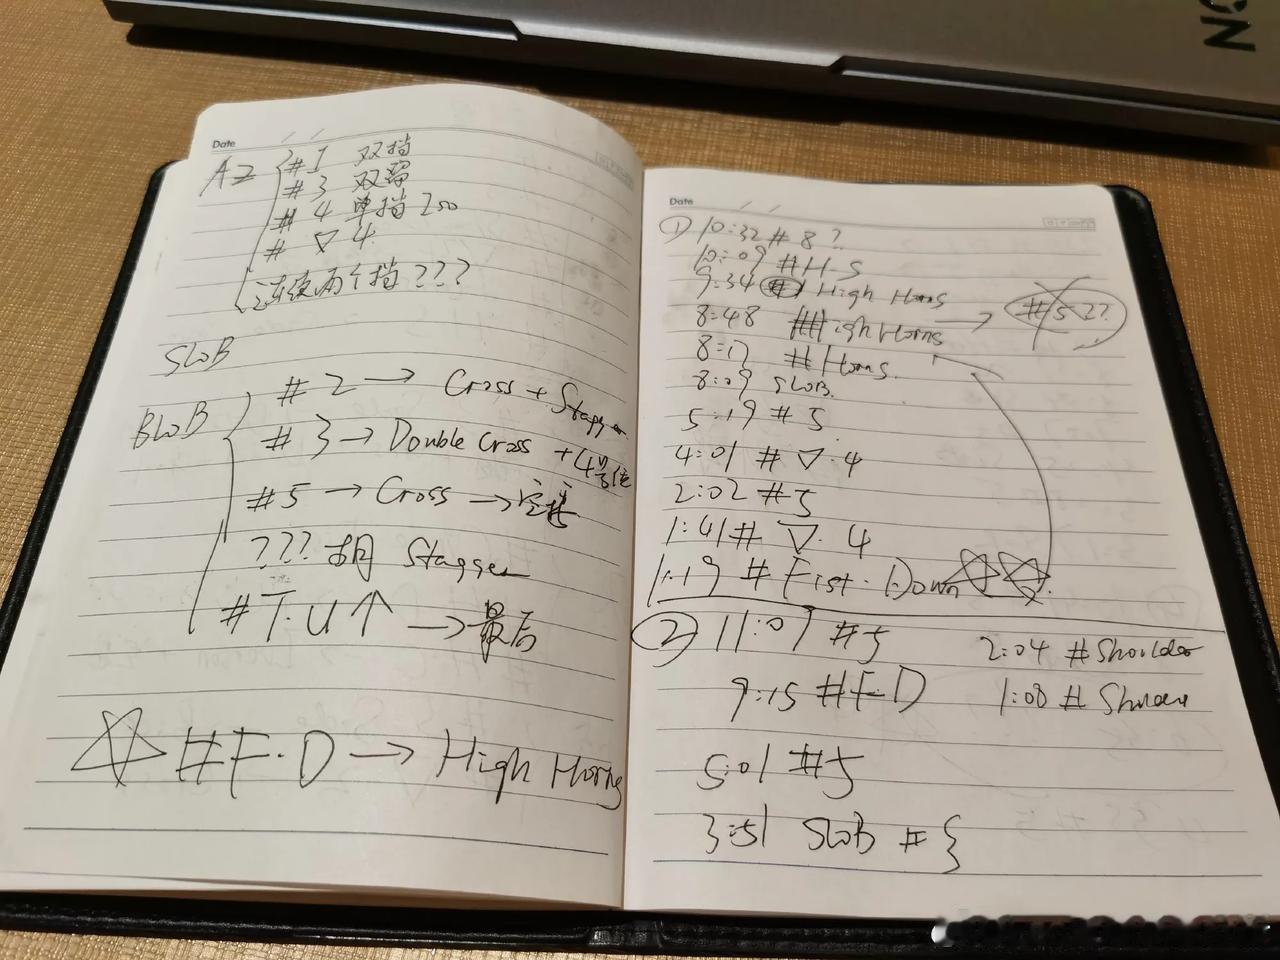 Date
A2
#1 双挡
#3 双留
#4 单挡 Zoo
# ▽ 4
连续两个挡???
SLOB
BLOB
#2 → Cross + Stagger
#3 → Double Cross +4号位
#5 → Cross →
??? 胡 Stagger
#T.U↑ → 最后
☆ #F.D → High Horns
Date
① 10:32 # 8?
10:09 #H-S
9:34 # High Horns
8:48 #High Horns → #5??
8:17 # Horns.
8:09 SLOB.
5:19 #5
4:01 # ▽.4
2:02 #5
1:41 # ▽.4
1:19 # Fist.Down ☆☆
② 11:07 #5
2:04 #Shoulder
9:15 #F.D
1:08 # Shoulder
5:01 #5
3:51 SLOB # {